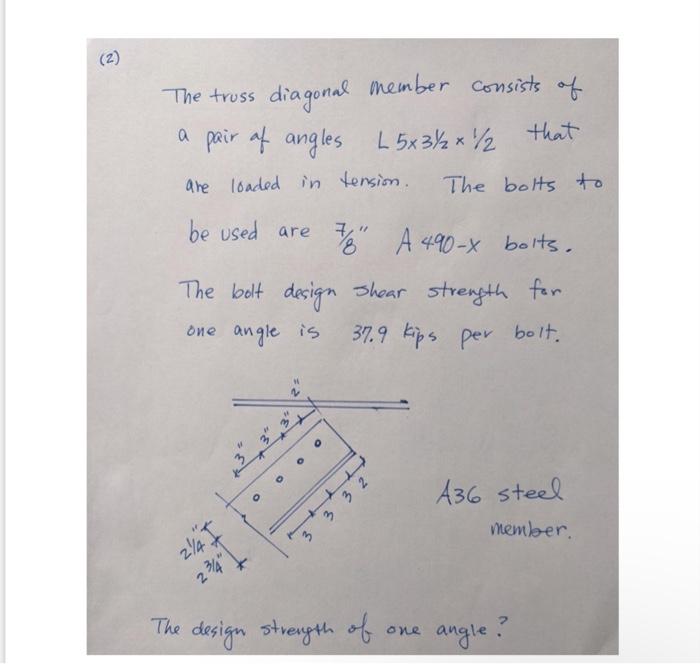 (2)
The truss diagonal member consists of
a pair of angles L 5x3½ x ½ that
are loaded in tension. The bolts to
be used are 7/8" A 490-X bolts.
The bolt design shear strength for
one angle is 37.9 kips per bolt.
2"
3" 3" 3"
3 3 3 2
2 1/4"
2 3/4"
A36 steel
member.
The design strength of one angle?